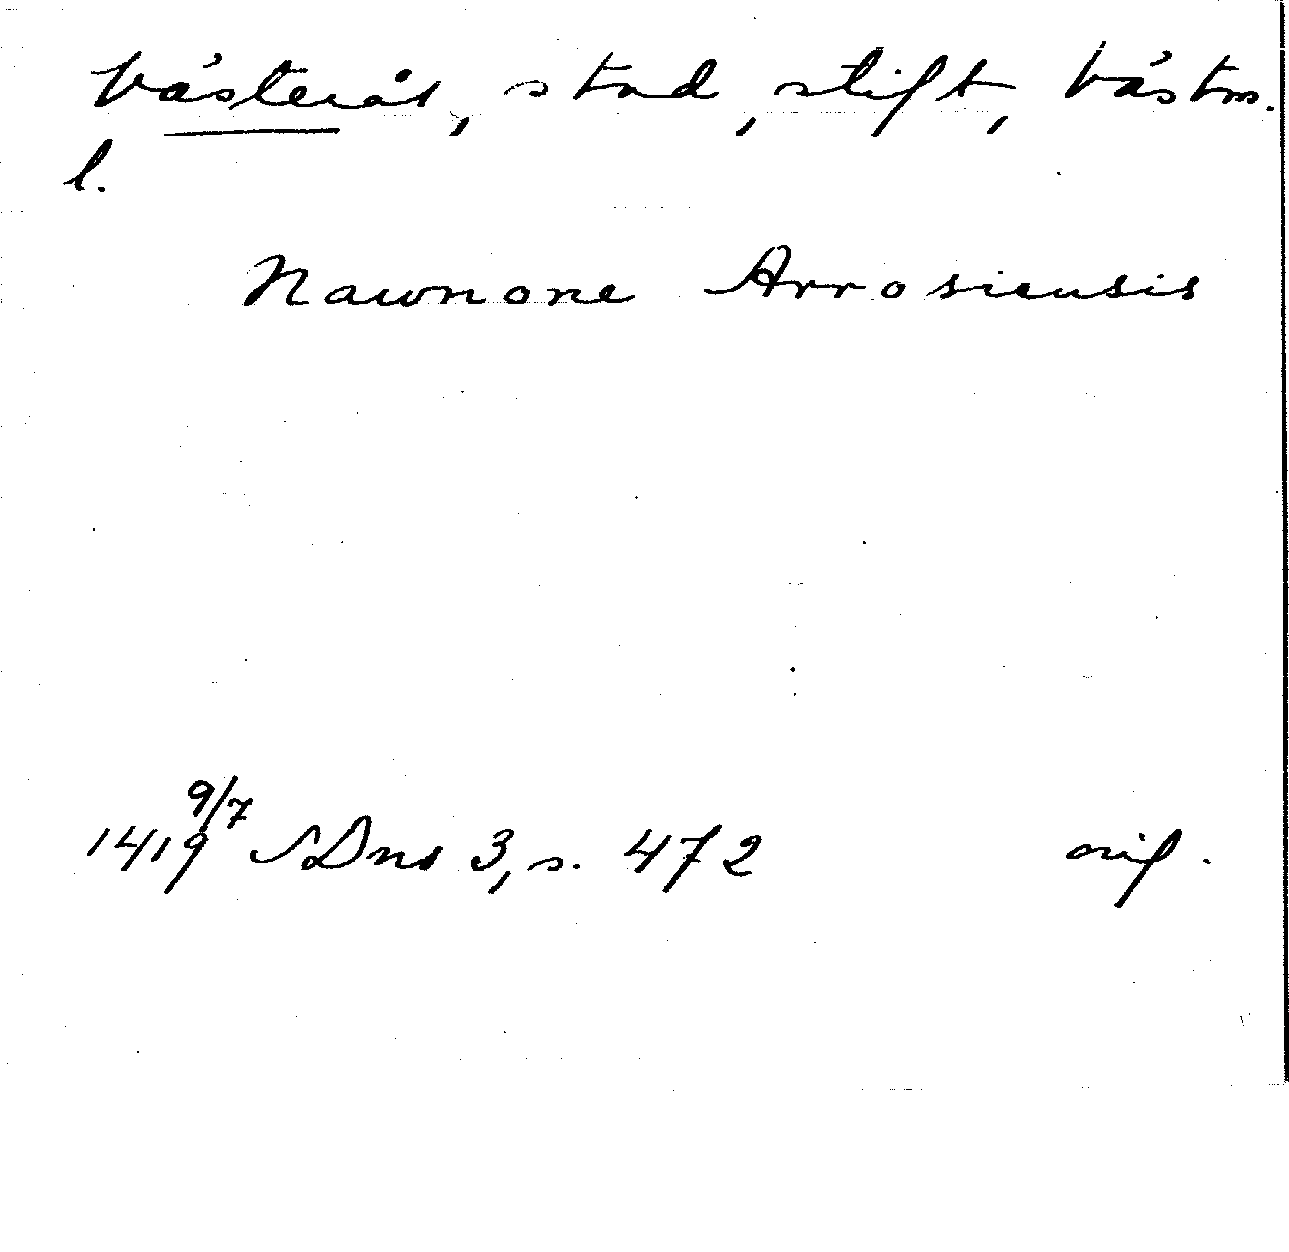 Västerås, stad, stift, Västm.
l.
Nawnone Arrosiensis
1419 9/7 SDns 3, s. 472 orig.